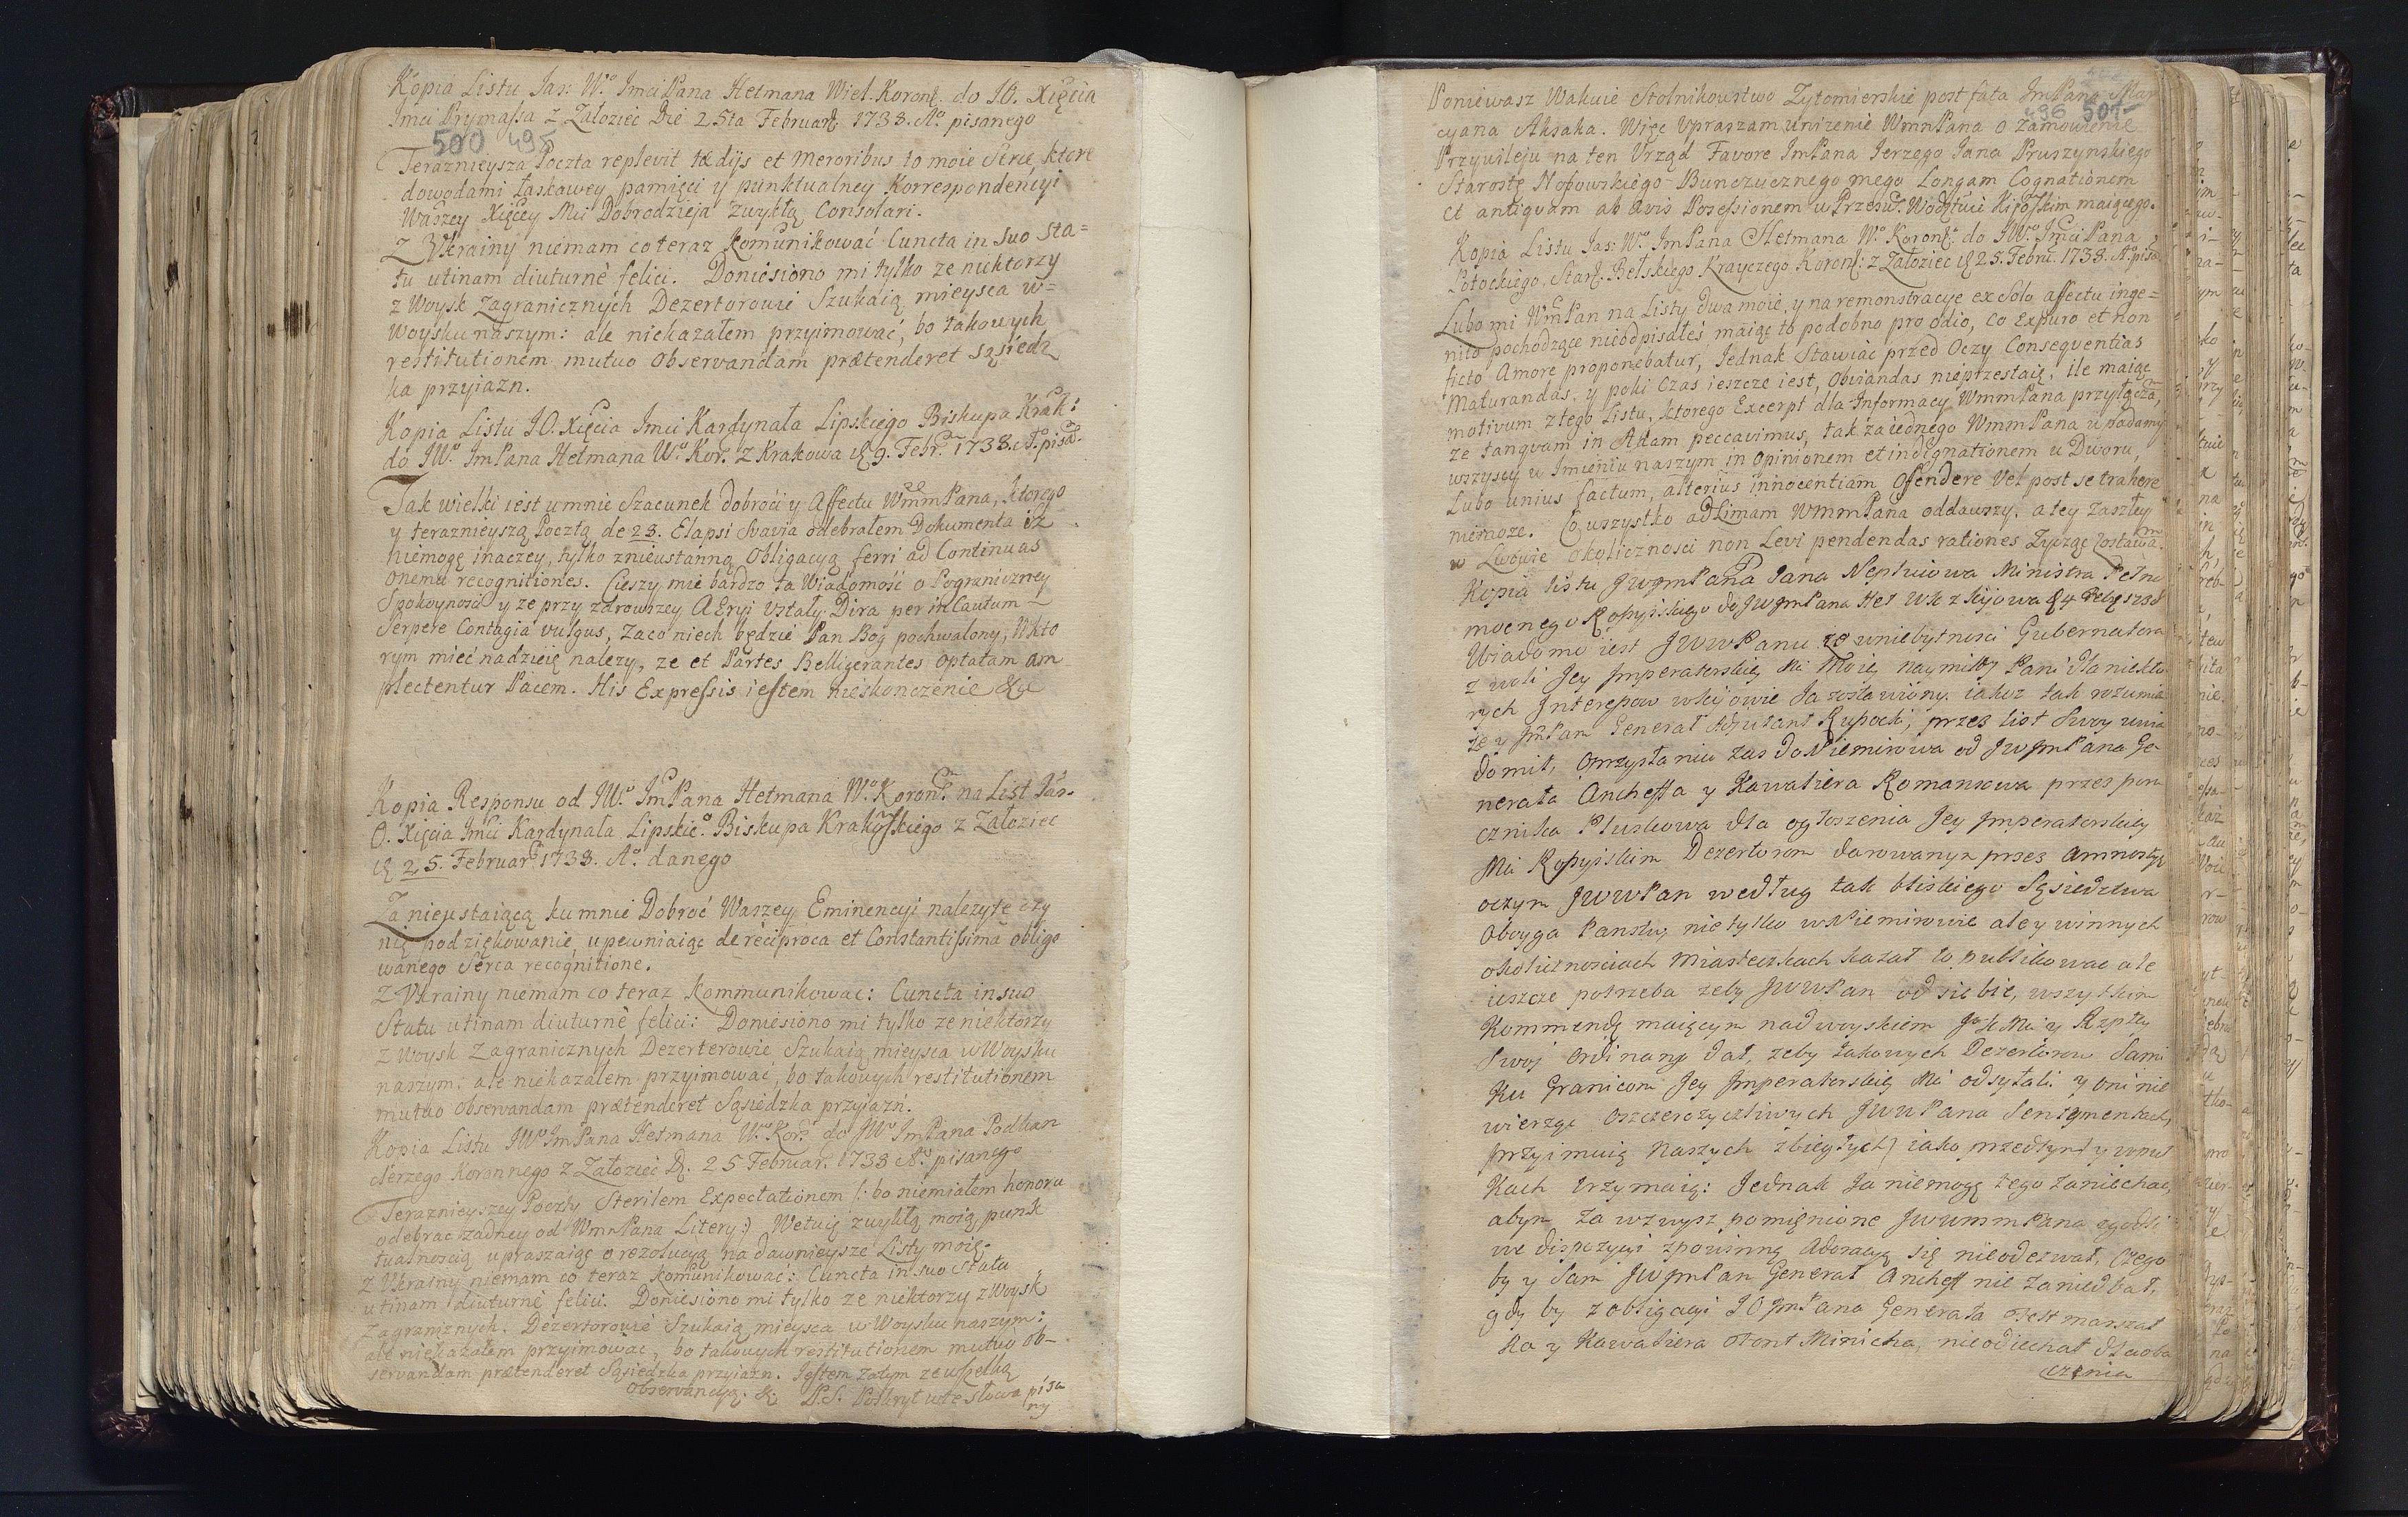 Kopia Listu Jas: Wo Jmci Pana Hetmana Wiel. Koron. do J.O. Xięcia
Jmci Prymassa z Załoziec Die 25ta Februar. 1738. Ao pisanego
500 495
Teraznieysza Poczta replevit tædijs et meroribus to moie Serce, ktore
dowodami łaskawey pamięci y punktualney Korrespondencyi
Waszey Xięcey Mci Dobrodzieja zwykłą Consolari.
Z Vkrainy niemam co teraz komunikować Cuncta in suo sta=
tu utinam diuturnè felici. Doniesiono mi tylko ze niektorzy
z Woysk Zagranicznych Dezertorowie Szukaią mieysca w=
Woysku naszym: ale niekazałem przyimować, bo takowych
restitutionem mutuo Observandam prætenderet sąsiedz
ka przyiazn.
Kopia Listu J.O. Xięcia Jmci Kardynała Lipskiego Biskupa Krak:
do JWo JmPana Hetmana Wo Kor. z Krakowa d 9. Febr. 1738. Ao pisa.
Jak wielki iest umnie Szacunek dobroci y Affectu WmmPana, ktorego
y teraznieyszą Pocztą de 23. Elapsi Svavia odebrałem Dokumenta iz
niemogę inaczey, tylko znieustanną Obligacyą ferri ad Continuas
onemu recognitiones. Cieszy mie bardzo ta Wiadomość o Pograniczney
Spokoynosci y ze przy zdrowszey AEryi Ustały Dira per incautum
Serpere Contagia vulgus, Zaco niech będzie Pan Bog pochwalony, Wkto
rym mieć nadzieię nalezy, ze et Partes Belligerantes optatam am
plectentur Pacem. His Expressis iestem nieskonczenie &c
Kopia Responsu od JWo JmPana Hetmana Wo Koron. na List Jas.
O. Xięcia Jmci Kardynała Lipskieo Biskupa Krakoskiego z Załoziec
d 25. Februar. 1738. Ao danego
Za nieustaiącą kumnie Dobroć Waszey Eminencyi nalezyte czy
nię podziękowanie, upewniaiąc de reciproca et Constantissima obligo
wanego Serca recognitione.
Z Vkrainy niemam co teraz kommunikowac: Cuncta in suo
Statu utinam diuturnè felici: Doniesiono mi tylko ze niektorzy
z woysk Zagranicznych Dezerterowie Szukaią mieysca w Woysku
naszym: ale niekazałem przyimować, bo takowych restitutionem
mutuo observandam prætenderet Sąsiedzka przyiazń.
Kopia Listu JWo JmPana Hetmana Wo Kor. do JWo JmPana Podkan
clerzego Koronnego z Załoziec D. 25 Februar. 1738 Ao pisanego
Teraznieyszey Poczty Sterilem Expectationem (: bo niemiałem honoru
odebrac zadney od WmPana Litery:) Wetuię zwykłą moią punk
tualnoscią upraszaiąc o rezolucyą na dawnieysze Listy moie.
z Vkrainy niemam co teraz komunikować: Cuncta in suo Statu
utinam diuturnè felici. Doniesiono mi tylko ze niektorzy z Woysk
Zagranicznych. Dezertorowie Szukaią mieysca w Woysku naszym:
ale niekazałem przyimować, bo takowych restitutionem mutuo ob-
servandam prætenderet Sąsiedzka przyiazn. Jestem zatym ze wszelką
Obserwancyą. &. P.S. Poskryt wte słowa pisa
ny
Poniewasz Wakuie Stolnikowstwo Zytomierskie post fata JmPana Mar
496 501
cyana Aksaka. Więc Vpraszam unizenie WmnPana o zamowienie
Przywileju na ten Vrząd Favore JmPana Jerzego Jana Pruszynskiego
Starostę Nosowskiego Bunczucznego mego Longam Cognationem
et antiquam ab Avis Posessionem w Przesw. Wodztwie Kijoskim maiącego.
Kopia Listu Jas: Wo JmPana Hetmana Wo Koron. do JWo JmciPana
Potockiego, Star. Bełskiego Krayczego Koron: z Załoziec d 25. Febru. 1738. Ao pisa
Lubo mi WmPan na Listy dwa moie, y na remonstracye ex Solo affectu inge=
nito pochodzące nieodpisałeś maiąc to podobno pro odio, co Expuro et non
ficto Amore proponebatur, Jednak Stawiac przed Oczy Conseqventias
Maturandas, y poki Czas ieszcze iest, Obviandas nieprzestaię, ile maiąc
motivum z tego Listu, ktorego Excerpt dla Informacy WmmPana przyłącza,
ze tanqvam in Adam peccavimus, tak za iednego WmmPana upadamy
wszyscy w Imieniu naszym in Opinionem et indignationem u Dworu,
Lubo unius factum, alterius innocentiam Offendere vel post se trahere
niemoze. Co wszystko ad Limam WmmPana oddawszy, a tey Zaszłey
w Lwowie okolicznosci non Levi pendendas rationes Zycząc zostawa.
Kopia listu JWJmPana Jana Neplujowa Ministra Pełno
mocnego Rossyiskiego do JWJmPana Het WK z Kijowa d 4 Febr 1738
Wiadomo iest JWWPanu ze wniebytnosci Gubernatora
z woli Jey Jmperatorskiey Mci Moiey naymiłoy Pani dla niekto
rych Interessow wkijowie Ja zostawiony. iakoz tak rozumię
ze y JmPan Generał Adjutant Rupocki, przez list Swoy uwia
domił, Oprzysłaniu zas do Niemirowa od JWJmPana Ge
nerała Ancheffa y Kawaliera Romansowa przez poru
cznika Pluskowa dla ogłoszenia Jey Jmperatorskiey
Mci Rossyiskim Dezertorom darowanym przez Amnestyę
oczym JWWPan według tak bliskiego Sąsiedztwa
Oboyga Panstw, nie tylko w Niemirowie ale y winnych
okolicznosciach Miasteczkach kazał to publikowac ale
ieszcze potrzeba zeby JWWPan od siebie, wszytkim
Kommendę maiącym nad woyskiem JK Mci y Rzptey
Swoj Ordinans dał, zeby takowych Dezertorow Sami
Ku Granicom Jey Jmperatorskiey Mci odsyłali y oni nie
wierząc Oszczerczyczliwych JWWPana Sentymentach,
przyimuią naszych zbiegłych, iako przedtym y wpul
kach trzymaią: Jednak Ja niemogę tego zaniechac,
abym za wzwysz pomięnione JWWmmPana
we dispozycyi zpowinną Adoracyą się nieodezwał, Czego
by y Sam JWJmPan Generał Ancheff nie zaniedbał,
gdy by z obligacyi JOJmPana Generała Felt marszał
ka y Kawaliera von Minicha, nieodiechał dla oba
czenia